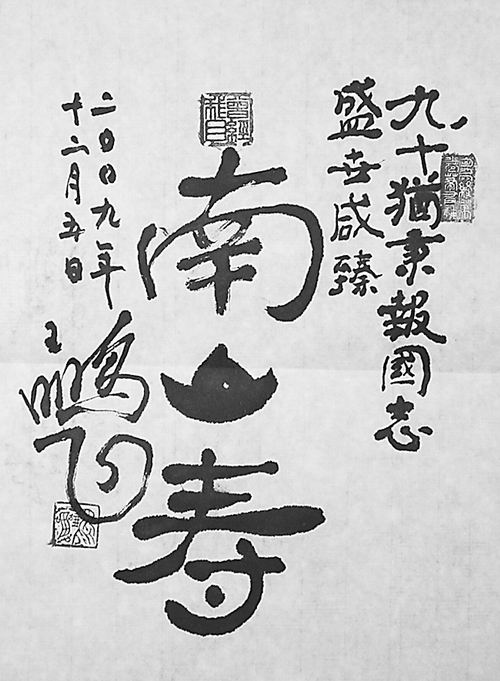 九十猶秉報國志
盛世咸臻
南山寿
二〇〇九年
十二月五日
王鹏